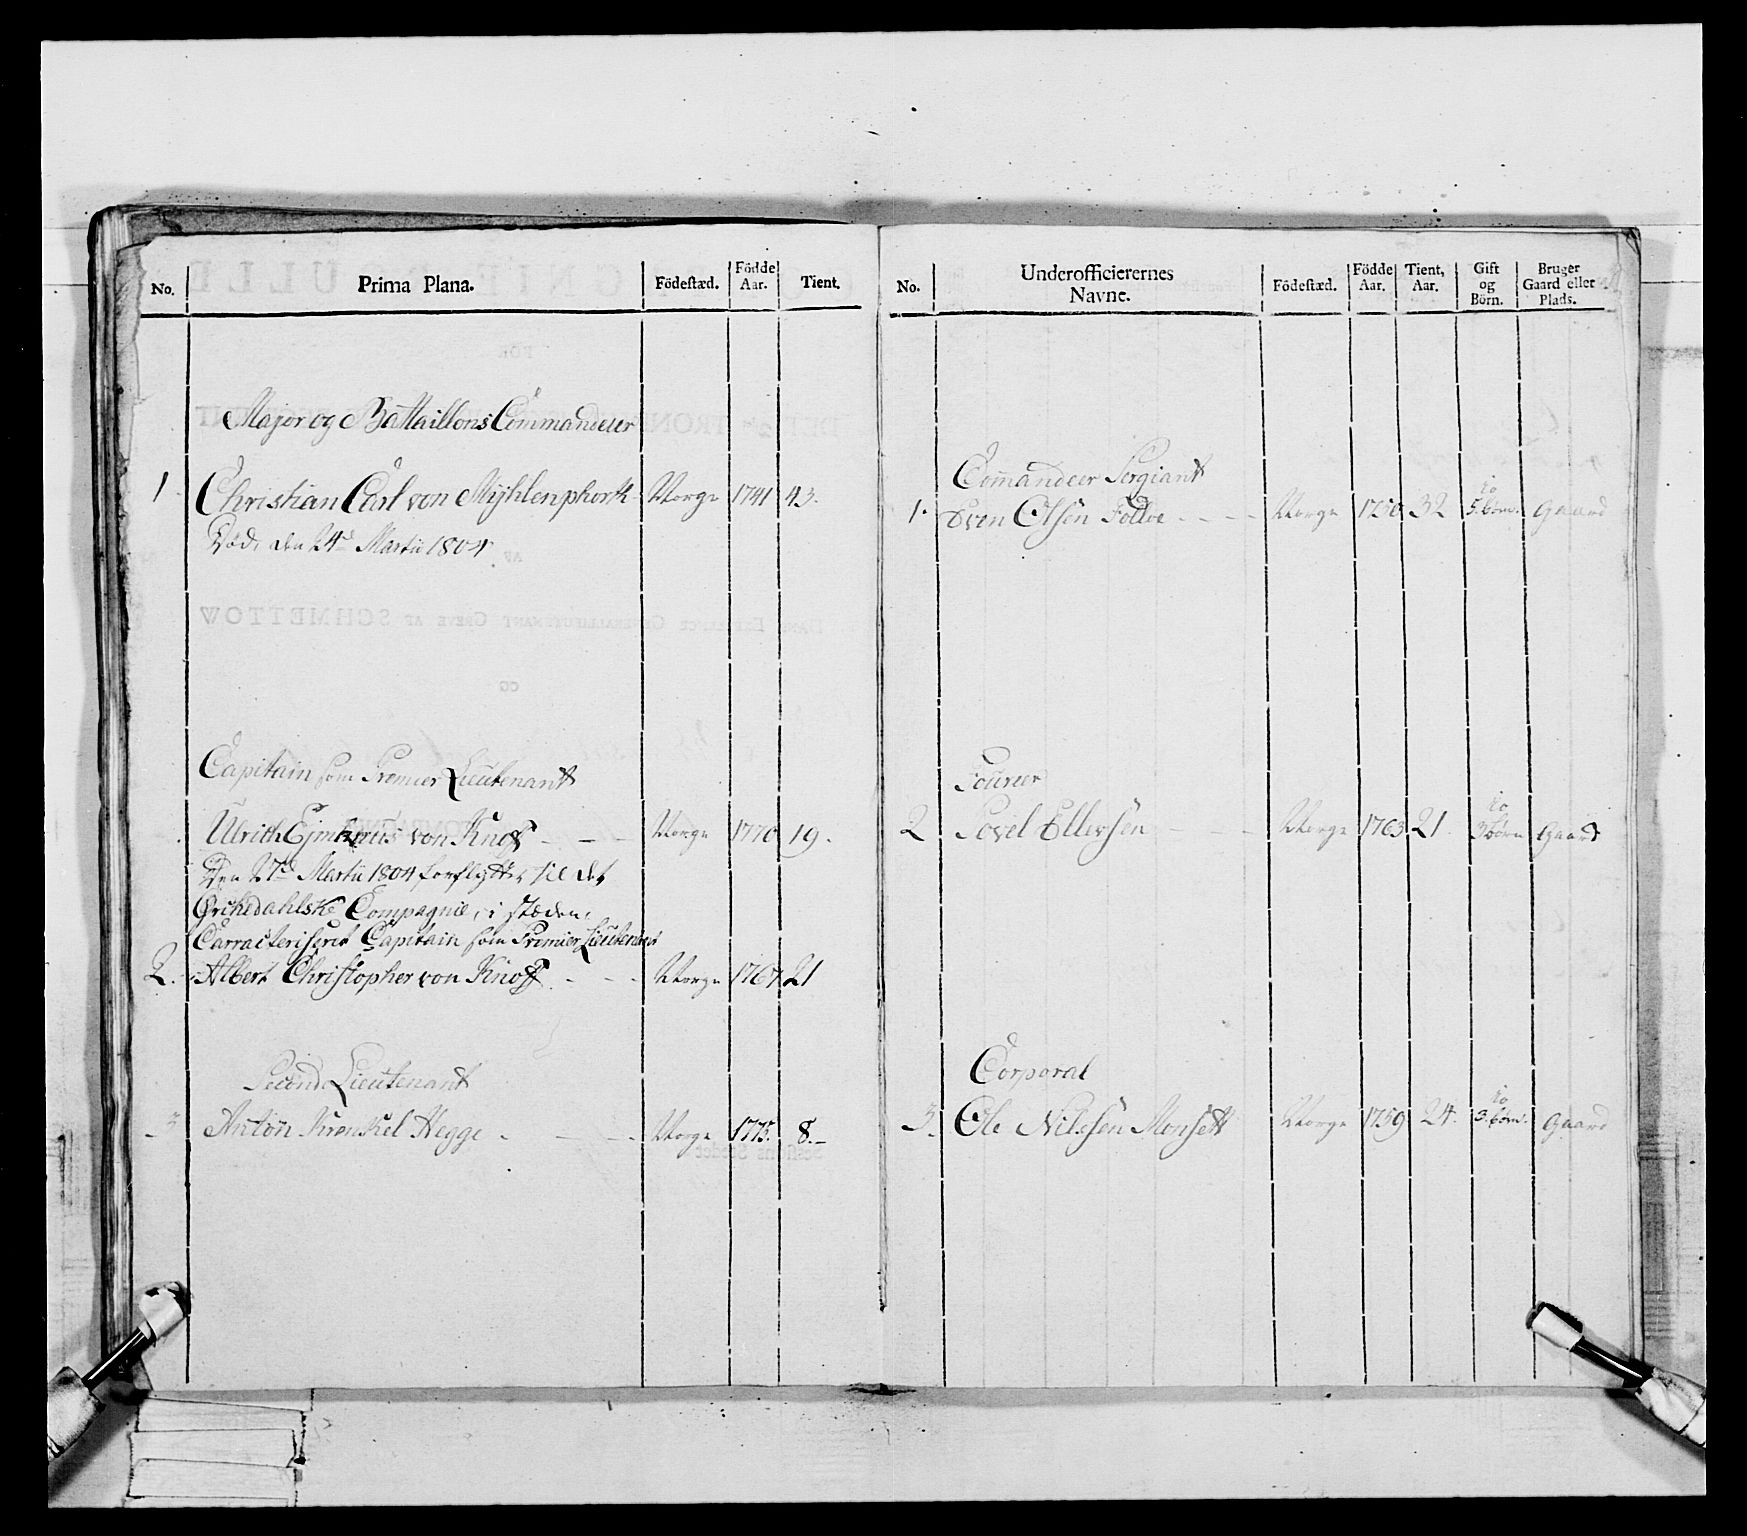 No. Prima Plana. Födestæd. Födde Aar. Tient.
Major og Battaillons Commandeur
1. Christian Carl von Mÿhlenphort Norge 1741 43.
Död, den 24de Martii 1804
Capitain som Premier Lieutenant
Ulrich von Knoff - - - Norge 1770 19.
Den 27de Martii 1804 forflyttet til det
Orchedahlske Compagnie, i stæden,
Carracteriseret Capitain som Premier Lieutenant
2. Albert Christopher von Knoff. - - - Norge 1767 21
Second Lieutenant
3 Anton Krenkel Hegge - - - Norge 1775. 8.-
No. Underofficierernes Navne. Födestæd. Födde Aar. Tient, Aar. Gift og Börn. Bruger Gaard eller Plads.
Comandeer Sergiant
1. Sven Olsen Folloe - - - Norge 1750 32 Jo 5. börn. Gaard
Fourier
2 Povel Ellevsen - - Norge 1763 21. Jo 3 börn Gaard
Corporal
3. Ole Nilssen Monsett Norge 1759 24. Jo 3. börn. Gaard